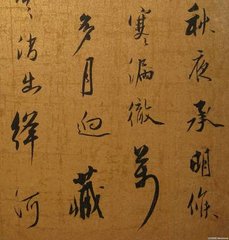 秋夜承明候
寒漏徹萬
多月迥藏
消出絳河